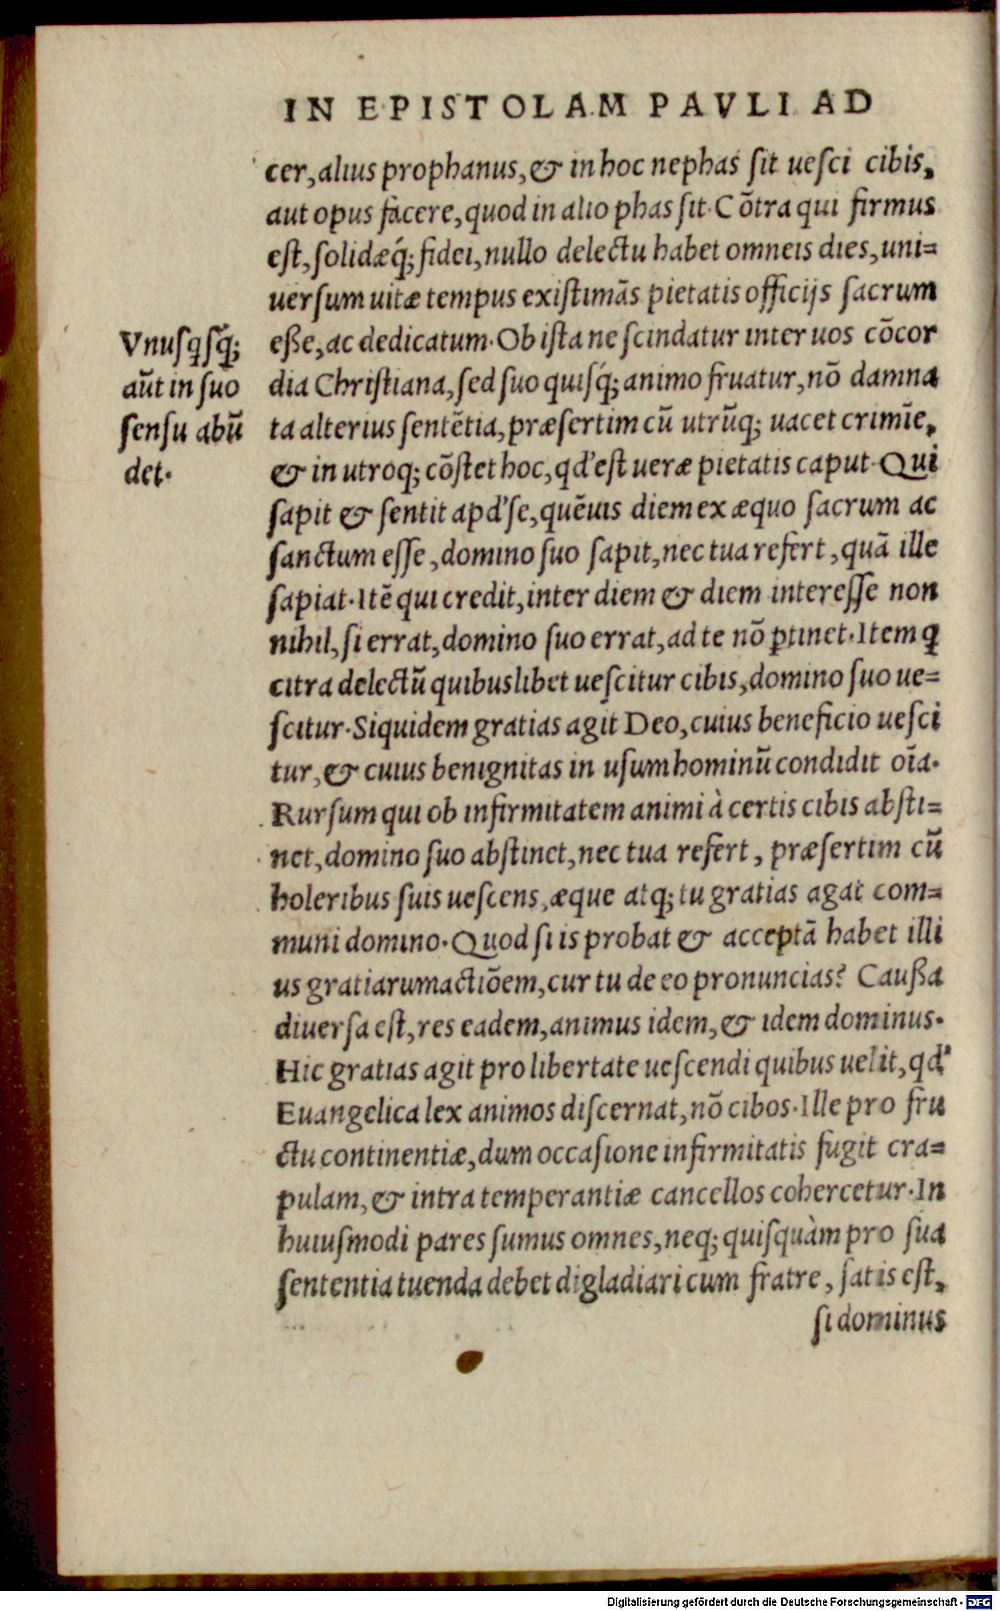 IN EPISTOLAM PAVLI AD
cer, alius prophanus, & in hoc nephas sit uesci cibis,
aut opus facere, quod in alio phas sit. Cõtra qui firmus
est, solidæq́; fidei, nullo delectu habet omneis dies, uni=
uersum uitæ tempus existimãs pietatis officijs sacrum
eße, ac dedicatum. Ob ista ne scindatur inter uos cõcor
dia Christiana, sed suo quisq́; animo fruatur, nõ damna
ta alterius sentẽtia, præsertim cũ utrũq; uacet crimĩe,
& in utroq; cõstet hoc, qd' est ueræ pietatis caput. Qui
sapit & sentit apd' se, quẽuis diem ex æquo sacrum ac
sanctum esse, domino suo sapit, nec tua refert, quã ille
sapiat. Itẽ qui credit, inter diem & diem interesse non
nihil, si errat, domino suo errat, ad te nõ ꝑtinet. Item ꝗ
citra delectũ quibuslibet uescitur cibis, domino suo ue=
scitur. Siquidem gratias agit Deo, cuius beneficio uesci
tur, & cuius benignitas in usum hominũ condidit oĩa.
Rursum qui ob infirmitatem animi à certis cibis absti=
net, domino suo abstinet, nec tua refert, præsertim cũ
holeribus suis uescens, æque atq; tu gratias agat com=
muni domino. Quod si is probat & acceptã habet illi
us gratiarumactiõem, cur tu de eo pronuncias? Caußa
diuersa est, res eadem, animus idem, & idem dominus.
Hic gratias agit pro libertate uescendi quibus uelit, qd'
Euangelica lex animos discernat, nõ cibos. Ille pro fru
ctu continentiæ, dum occasione infirmitatis fugit cra=
pulam, & intra temperantiæ cancellos cohercetur. In
huiusmodi pares sumus omnes, neq; quisquàm pro sua
sententia tuenda debet digladiari cum fratre, satis est,
si dominus
Vnusꝗsq́;
aũt in suo
sensu abũ
det.
Digitalisierung gefördert durch die Deutsche Forschungsgemeinschaft - DFG